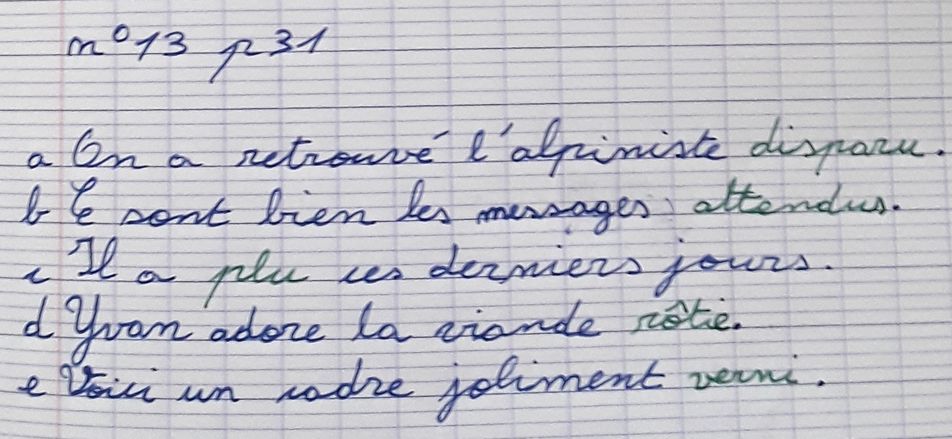 n°13 p31
a On a retrouvé l'alpiniste disparu.
b Ce sont bien les messages attendus.
c Il a plu ces derniers jours.
d Yvan adore la viande rôtie.
e Voici un cadre joliment verni.